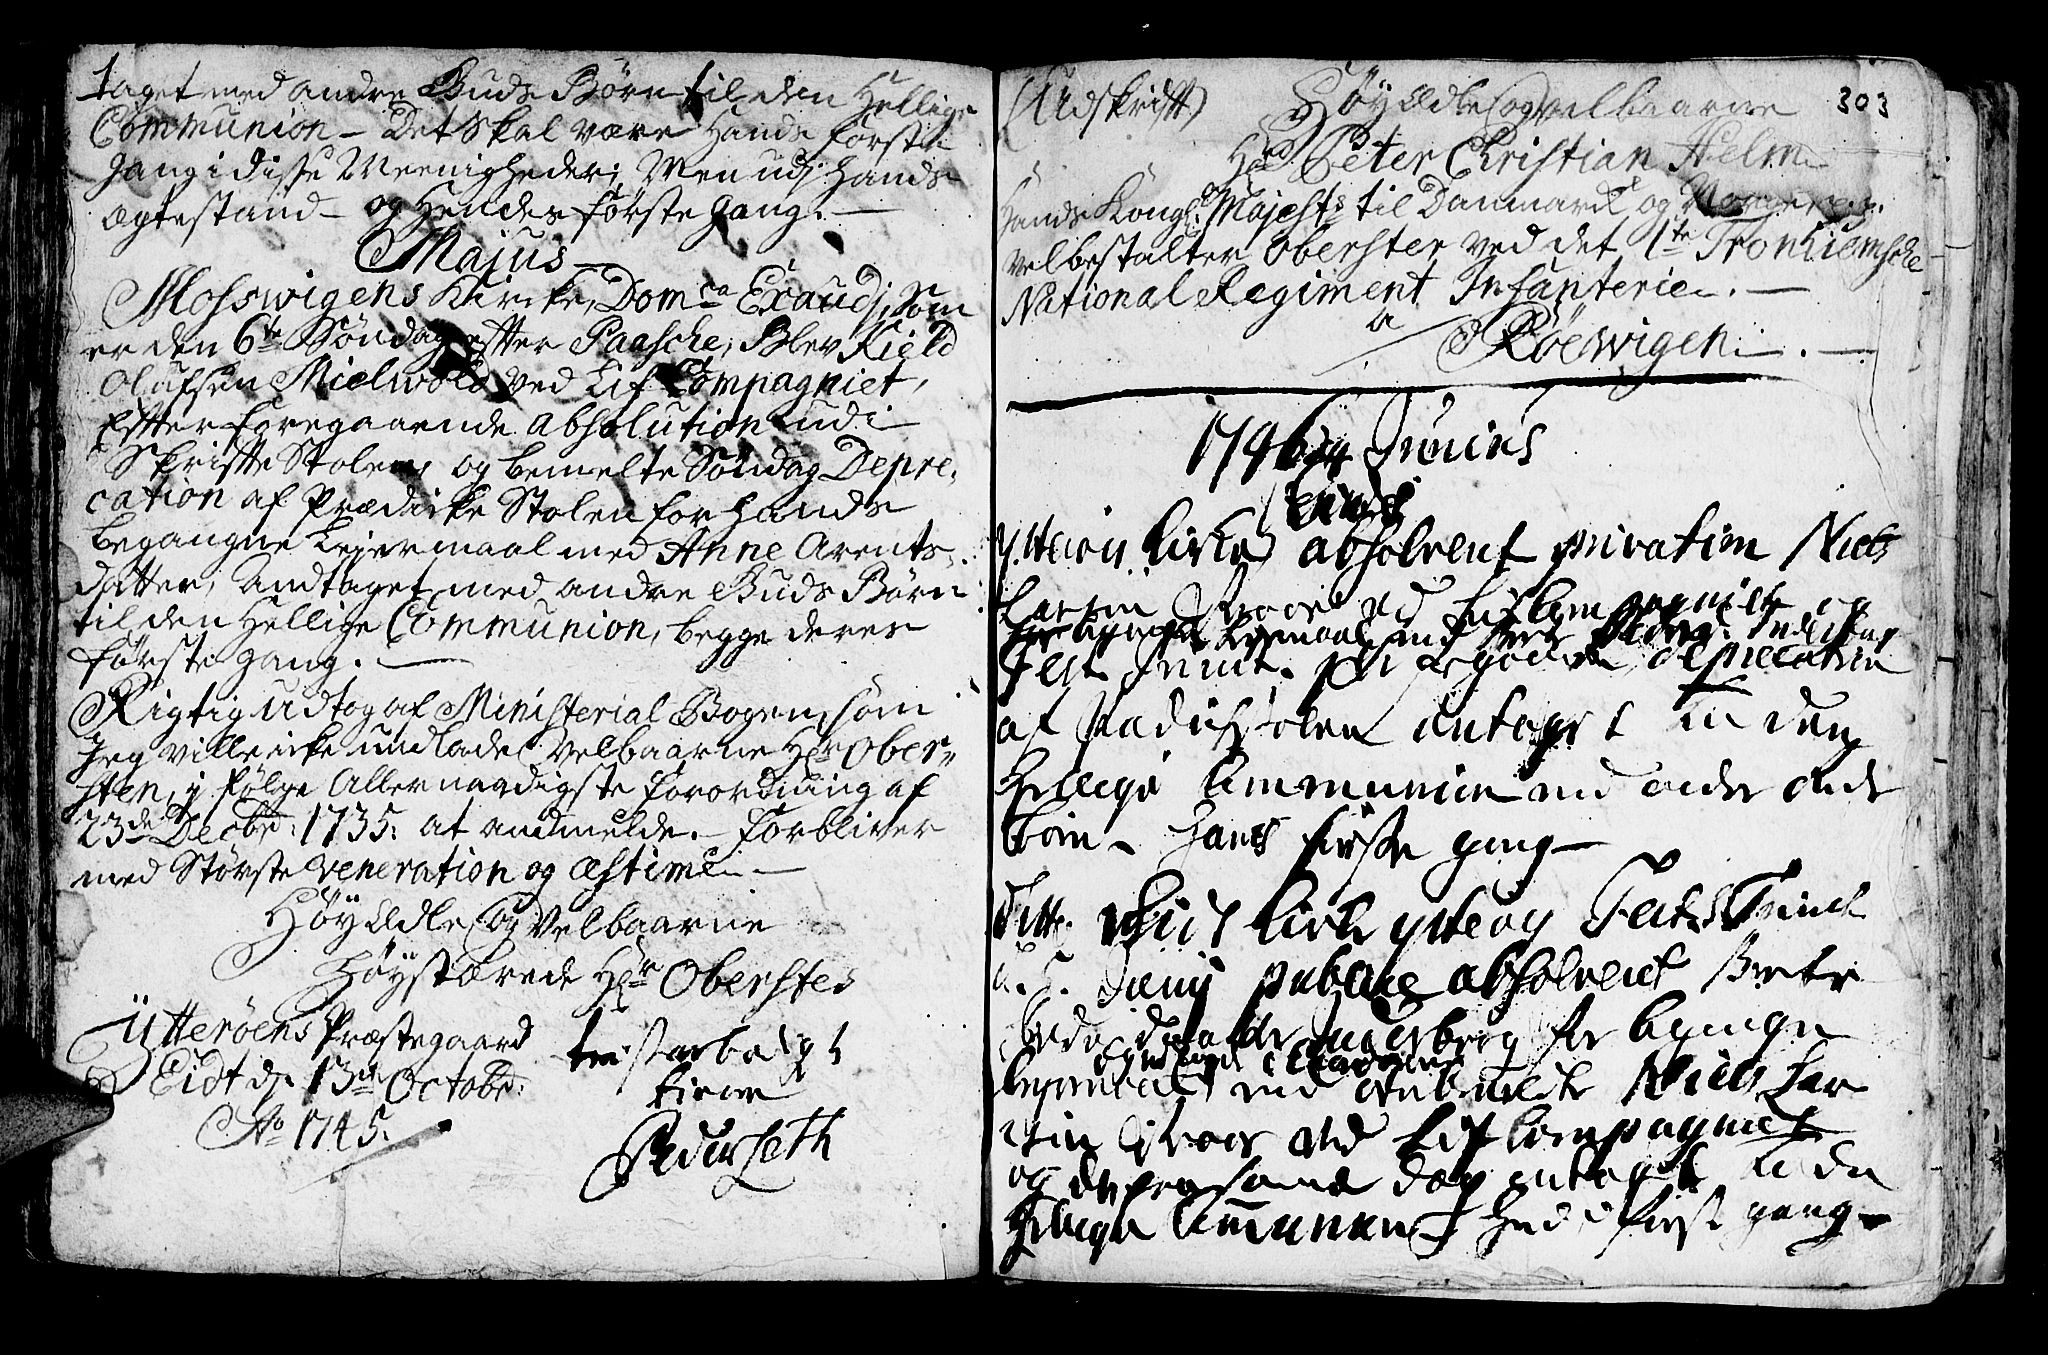 taget med andre Guds Børn til den Hellige
Communion – Det Skal være Hands første
Gang i disse Meenigheder; Men udj Hands
Ægtestand – og Hendes første Gang. –
Majus –
Mosswigens Kircke, Dom:ca Exaudj, Som
er den 6te Søndag effter Paasche, Blev Kield
Olufsen Mielwold ved Lif Compagniet,
Effter foregaaende Absolution udi
Skriffte Stolen, og bemelte Søndag Depre-
cation af Prædicke Stolen for Hands
begangne Leyermaal med Anne Arents-
datter, Andtaget med andre Guds Børn
til den Hellige Communion, begge deres
første Gang. –
Rigtig Udtog af Ministerial Bogen, som
Jeg ville icke undlade Velbaarne Hr Ober-
sten, j følge Allernaadigste forordning af
23de Decbr: 1735: at andmelde. – forbliver
med Største Veneration og Æstime –
Høy Ædle og Velbaarne
Høystærede Hr Oberstes
Ütterøens Præstegaard
Eidt d. 13de Octobr:
Ao 1745.
tienne
Peder Leth
303
(Udskrifft) Høy Ædle og Velbaarne
Hr Peter Christian Helm
Hands Kongl. Majests til Danmark og Norge
Velbestalter Oberster ved det 1te Tronhiemske
National Regiment Infanterie. –
a
Røewigen. –
1746 Junius
kirke absolveret privatim Niels
Larsen ved Lif Compagniet og
deprecation
af Prædichstolen antaget til den
Hellige Communion med andre Guds
Børn – Hans første gang –
Ditto kirke Ytterøy Festo Trinit
publice absolveret
for begangne
med Niels Lar
ved Lif Compagniet
og samme dag antaget til den
Hellige Communion første gang –